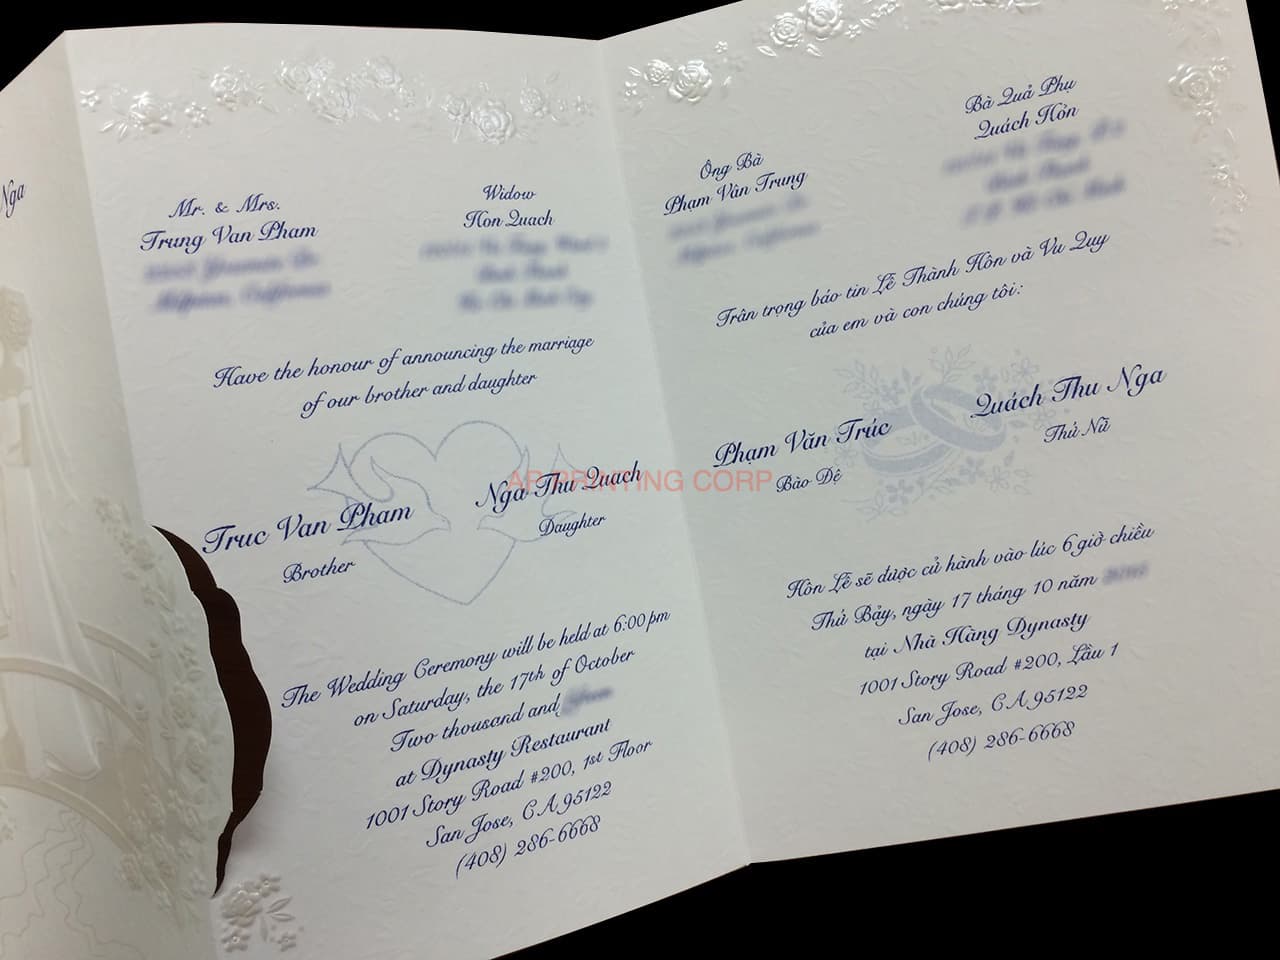 Nga
Mr. & Mrs.
Trung Van Pham
Widow
Hon Quach
Have the honour of announcing the marriage
of our brother and daughter
Truc Van Pham
Brother
Nga Thu Quach
Daughter
The Wedding Ceremony will be held at 6:00 pm
on Saturday, the 17th of October
Two thousand and
at Dynasty Restaurant
1001 Story Road #200, 1st Floor
San Jose, CA 95122
(408) 286-6668
Ông Bà
Phạm Văn Trung
Bà Quả Phụ
Quách Hỏn
Trân trọng báo tin Lễ Thành Hôn và Vu Quy
của em và con chúng tôi:
Phạm Văn Trúc
Bào Đệ
Quách Thu Nga
Thứ Nữ
Hôn Lễ sẽ được cử hành vào lúc 6 giờ chiều
Thứ Bảy, ngày 17 tháng 10 năm
tại Nhà Hàng Dynasty
1001 Story Road #200, Lầu 1
San Jose, CA 95122
(408) 286-6668
AP PRINTING CORP